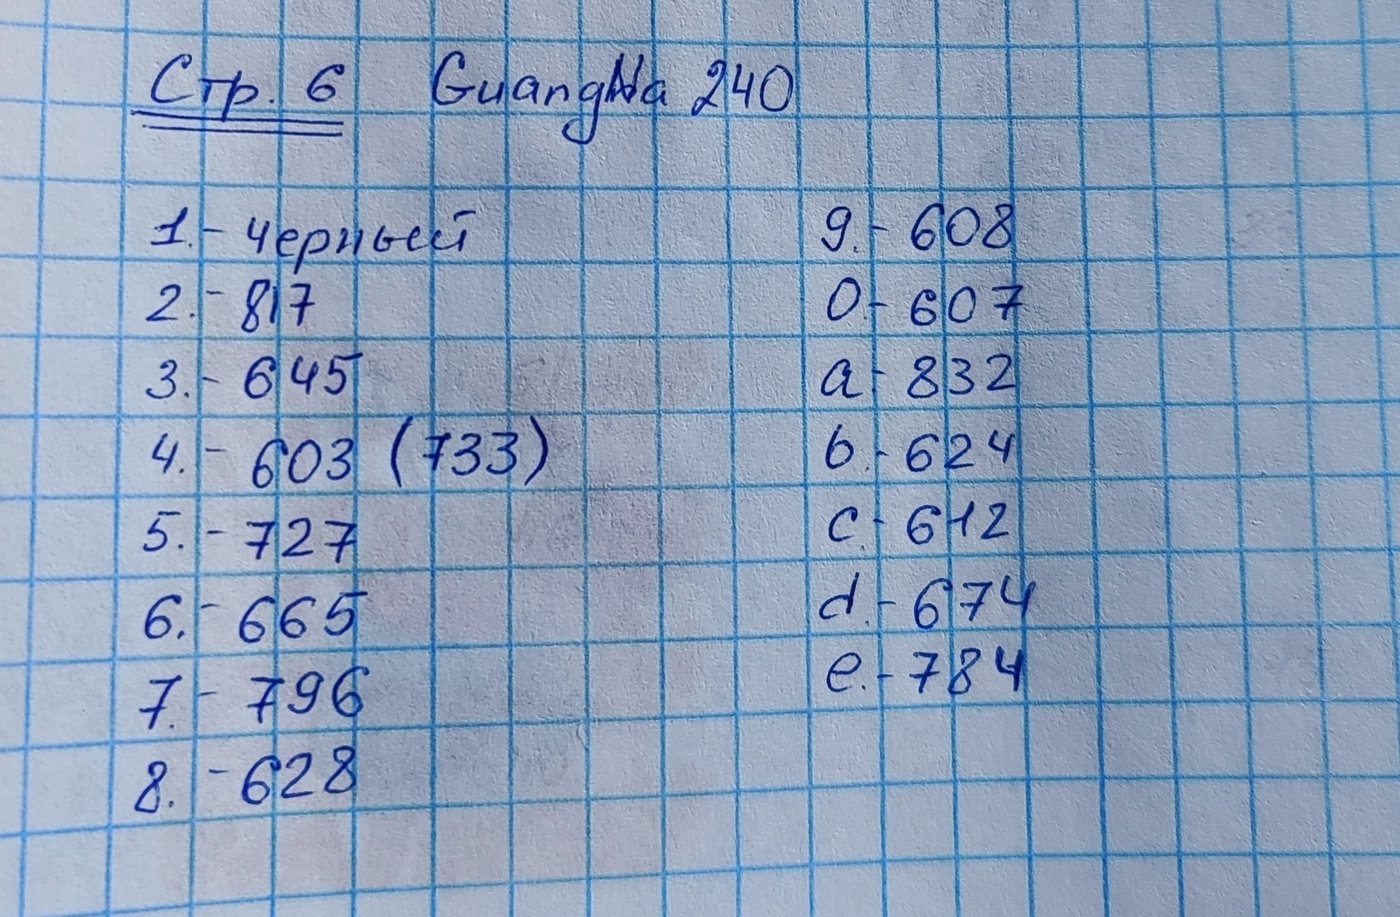 Стр. 6 GuangNa 240
1. - черный
2. - 817
3. - 645
4. - 603 (733)
5. - 727
6. - 665
7. - 796
8. - 628
9. - 608
0 - 607
a - 832
b. - 624
c. - 612
d. - 674
e. - 784